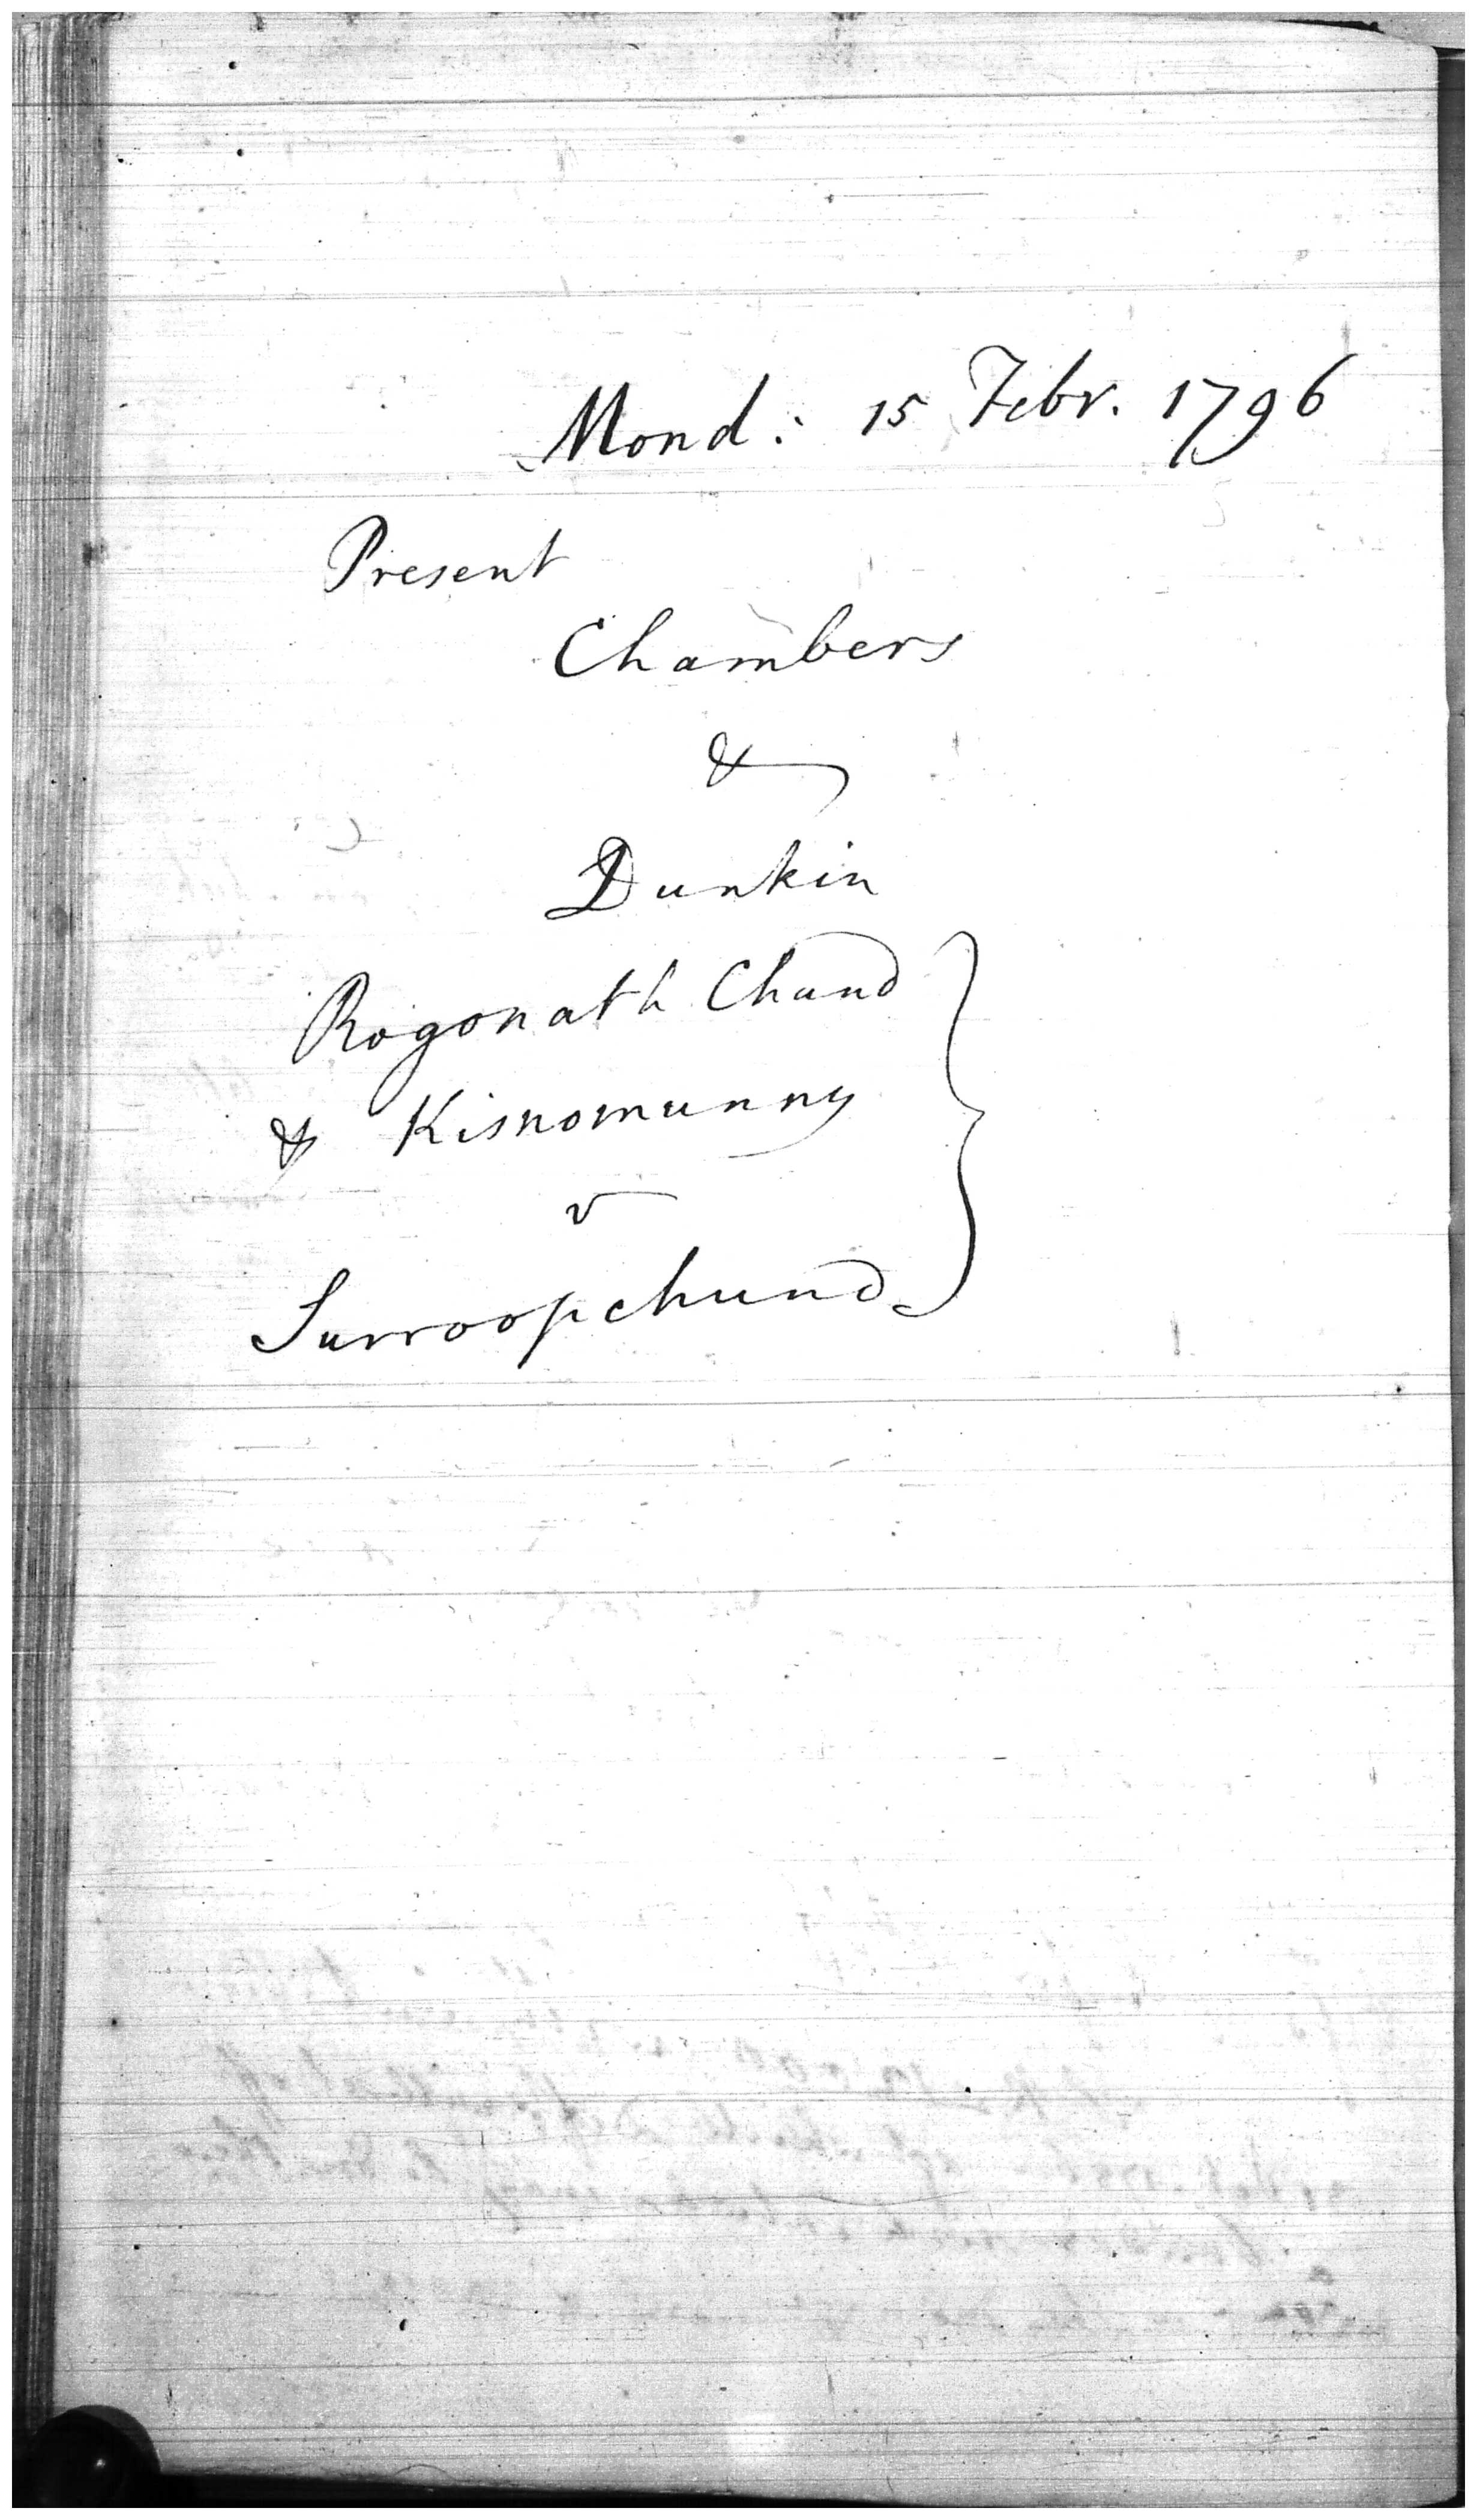 Mond: 15 Febr. 1796
Present
Chambers
&
Dunkin
Rogonath Chund
& Kisnomunny
v
Surroopchund